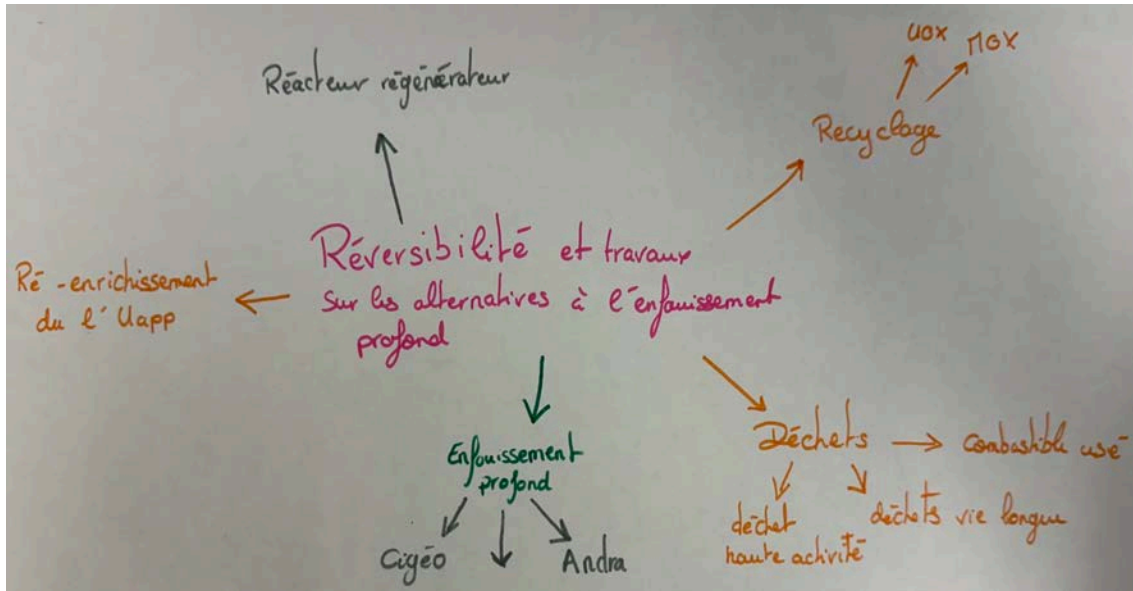 UOX
MOX
Réacteur régénérateur
Recyclage
Réversibilité et travaux
sur les alternatives à l'enfouissement
profond
Ré-enrichissement
du l'Uapp
Enfouissement
profond
Cigéo
Andra
Déchets
combastible usé
déchet
haute activité
déchets vie longue